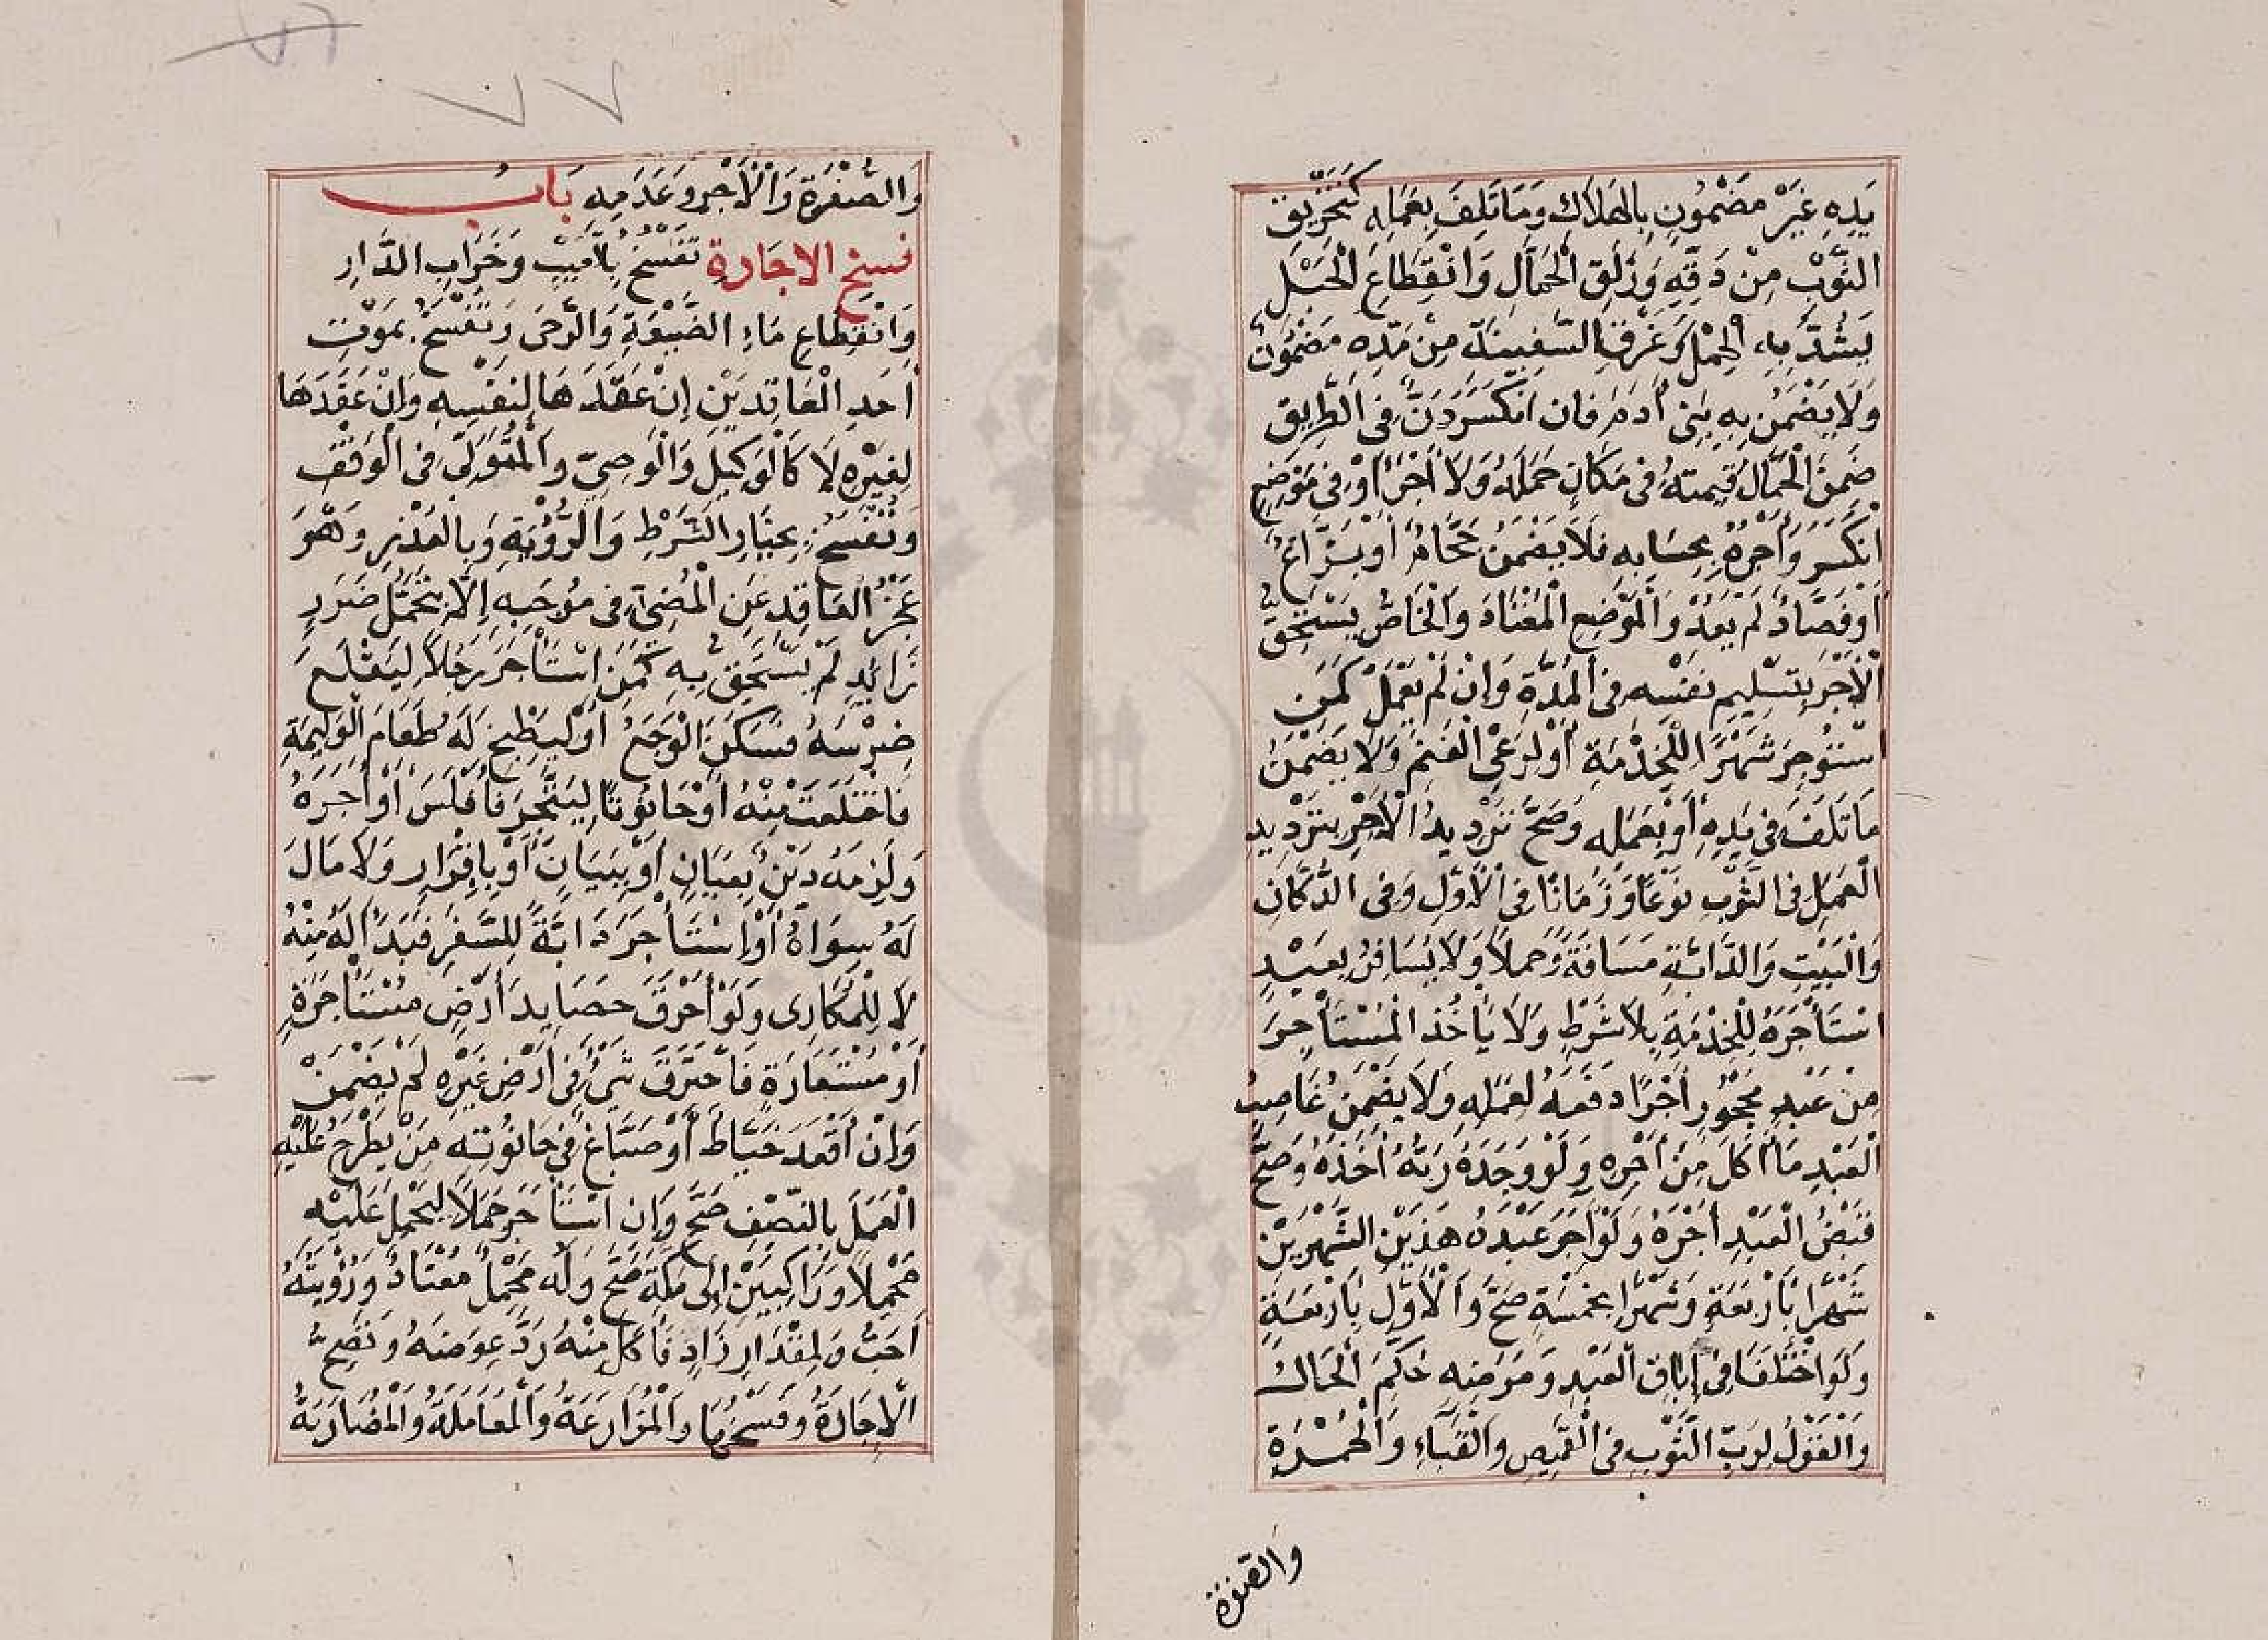 يَدِهِ غَيْرُ مَضْمُونٍ بِالهَلَاكِ وَمَا تَلِفَ بِعَمَلِهِ كَتَخْرِيقِ
الثَّوْبِ مِنْ دَقِّهِ وَزَلَقِ الْحَمَّالِ وَانْقِطَاعِ الْحَبْلِ
يَشُدُّ بِهِ الْحِمْلَ وَغَرْقِ السَّفِينَةِ مِنْ مَدِّهِ مَضْمُونٌ
وَلَا يَضْمَنُ بِهِ بَنِى أَدَمَ فان انكَسَرَ دَنٌّ فِى الطَّرِيقِ
ضَمِنَ الْحَمَّالُ قِيمَتَهُ فى مَكَانِ حَمْلِهِ وَلَا أَجْرَ أَوْ فِى مَوْضِعٍ
انْكَسَرَ وَأَجْرُهُ بِحِسَابِهِ فَلَا يَضْمَنُ حَجَّامٌ أو بَزَّاغٌ
أَوْ فَصَّادٌ لَمْ يَعْدُ وَالْمَوْضِعِ الْمُعْتَادَ وَالْخَاصُّ يَسْتَحِقُّ
الْأَجْرَ بِتَسْلِيمِ نَفْسِهِ فى الْمُدَّةِ وَإِنْ لَمْ يَعْمَلْ كَمَن
اسْتُوجِرَ شَهْرًا لِلْخِذْمَةِ أَوْ لِرَعْىِ الْغَنَمِ وَلَا يَضْمَنُ
مَا تَلَفَ فى يَدِهِ أو بِعَمَلِهِ وَصَحَّ تَرْدِيدُ الْأَجْرِ بِتَرْدِيدِ
الْعَمَلِ فى الثَّوْبِ نَوْعًا وَزَمَانًا فِى الْأَوَّلِ وَفِى الدُّكَّانِ
وَالْبَيْتِ وَالدَّابَّةِ مَسَافَةً وَحِملاً وَلَا يُسَافِرُ بِعَبْدٍ
اسْتَأْجَرَهُ لِلْخِذْمَةِ بِلَا شَرْطٍ وَلَا يَأْخُذُ الْمُسْتَأْجِرَ
مِنْ عَبْدٍ مَحْجُورٍ أَجْرًا دَفَعَهُ لِعَمَلِهِ وَلَا يَضْمَنُ غَاصِبُ
الْعَبْدِ مَا أَكَلَ مِنَ أَجْرِهِ وَلَوْ وَجَدَهُ رَبُّهُ أَخَذَهُ وَصَحَّ
قَبْضُ الْعَبْدِ أَجْرَهُ وَلَوْ آجَرَ عَبْدَهُ هَذَيْنِ الشَّهْرَيْنِ
شَهْرًا بِأَرْبَعَةٍ وَشَهْرًا بِخَمْسَةٍ صَحَّ وَالْأَوَّلُ بِأَرْبَعَةٍ
وَلَوِ اخْتَلَفَا فِى إِبَاقِ الْعَبْدِ وَمَرَضِهِ حُكِّمَ الْحَالُ
وَالْقَوْلُ لِرَبِّ الثَّوْبِ فى الْقَمِيصِ وَالْقَبَاءِ وَالْحُمْرَةِ
والصفرة
وَالصُّفْرَةِ وَالْأَجْرِ وَعَدَمِهِ بَابُ
فسخ الاجَارة تُفْسَخُ بِالْعَيْبِ وَخَرَابِ الدَّارِ
وَانْقِطَاعِ مَاءِ الضَّيْعَةِ وَالرَّحَى وَتَنْفَسِخُ بِمَوْتِ
أَحَدِ الْعَاقِدَيْنِ إِنْ عَقَدَهَا لِنَفْسِهِ وَإِنْ عَقَدَهَا
لِغَيْرِهِ لَا كَالْوَكِيلِ وَالْوَصِيِّ وَالْمُتَوَلِّى فى الْوَقْفِ
وَتُفْسَخُ بِخِيَارِ الشَّرْطِ وَالرُّؤْيَةِ وَبِالْعُذْرِ وَهُوَ
عَجْزُ الْعَاقِدِ عَنِ الْمُضِىِّ فى مُوجَبِهِ إِلَّا بِتَحَمُّلِ ضَرَرٍ
زَائِدٍ لَمْ يَسْتَحِقَّ بِهِ كَمَنِ اسْتَأْجَرَ رَجُلاً لِيَقْلَعَ
ضِرْسَهُ فَسَكَنَ الْوَجَعُ أَوْ لِيَطْبَخَ لَهُ طَعَامَ الْوَلِيمَةِ
فَاخْتَلَعَتْ مِنْهُ أَوْ حَانُوتًا لِيَتَّجِرَ فَأَفْلَسَ أَوْ أَجَرَهُ
وَلَزِمَهُ دَيْنٌ بِعِيَانٍ أَوْ بِبَيَانٍ أَوْ بِإِقْرَارٍ وَلَا مَالَ
لَهُ سِوَاهُ أَوْ اسْتَأْجَرَ دَابَّةً لِلسَّفَرِ فَبَدَا لَهُ مِنْهُ
لَا لِلْمُكَارِى وَلَوْ أَحْرَقَ حَصَايِدَ أَرْضٍ مُسْتَأْجَرَةٍ
أَوْ مُسْتَعَارَةٍ فَاحْتَرَقَ شَىْءٌ فِى أَرْضِ غَيْرِهِ لَمْ يَضْمَنْ
وَإِنْ أَقْعَدَ خَيَّاطٌ أَوْ صَبَّاغٌ فِى حَانُوتِهِ مَنْ يَطْرَحُ عَلَيْهِ
الْعَمَلَ بِالنِّصْفِ صَحَّ وَإِن اسْتَأْجَرَ جَمَلاً لِيَحْمِلَ عَلَيْهِ
مَحْمِلاً وَرَاكِبَيْنِ إِلَى مَكَّةَ صَحَّ وَلَهُ مَحْمِلٌ مُعْتَادٌ وَرُؤْيَتُهُ
أَحَبُّ وَلِمِقْدَارِ زَادٍ فَأَكَلَ مِنْهُ رَدَّ عِوَضَهُ وَتَصِحُّ
الْإِجَارَةُ وَفَسْخُهَا وَالْمُزَارَعَةُ وَالْمُعَامَلَةُ وَالْمُضَارَبَةُ